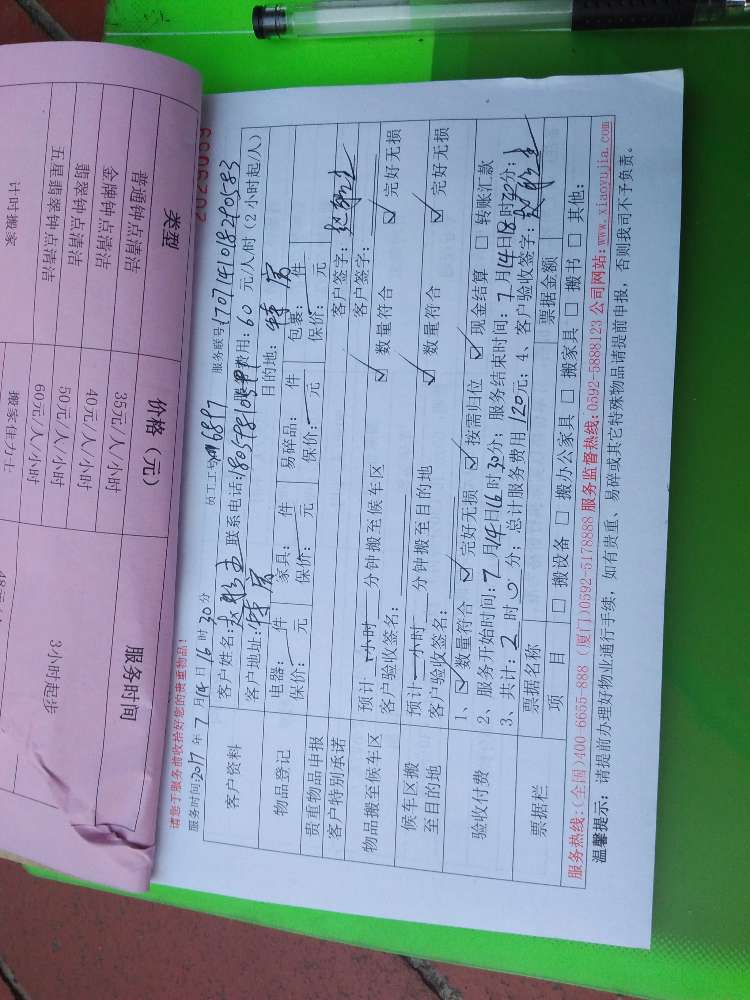 类型
价格（元）
服务时间
普通钟点清洁
35元/人/小时
金牌钟点清洁
40元/人/小时
3小时起步
翡翠钟点清洁
50元/人/小时
五星翡翠钟点清洁
60元/人/小时
计时搬家
搬家佳力士
2029059
请您于服务前收拾好您的贵重物品！
服务时间:2017年7月14日16时30分 员工工号 6897 服务联号:1707141018290583
客户资料
客户姓名: 联系电话: 服务费用:60元/人/时(2小时起/人)
客户地址: 目的地:
物品登记
电器: 件 家具: 件 易碎品: 件 包裹: 件
贵重物品申报
保价: 元 保价: 元 保价: 元 保价: 元
客户特别承诺
客户签字:
物品搬至候车区
预计 一小时 分钟搬至候车区
客户签字:
客户验收签名: ☑数量符合 ☑完好无损
候车区搬至目的地
预计 一小时 分钟搬至目的地
客户验收签名: ☑数量符合 ☑完好无损
验收付费
1、☑数量符合 ☑完好无损 ☑按需归位 ☑现金结算 □转账汇款
2、服务开始时间:7月14日16时30分; 服务结束时间:7月14日18时30分;
3、共计:2时0分; 总计服务费用120元; 4、客户验收签字:
票据栏
票据名称 票据金额
项目 □搬设备 □搬办公家具 □搬家具 □搬书 □其他:
服务热线:(全国)400-6655-888 (厦门)0592-5178888 服务监督热线:0592-5888123 公司网站:www.xiaoyujia.com
温馨提示: 请提前办理好物业通行手续，如有贵重、易碎或其它特殊物品请提前申报，否则我司不予负责。